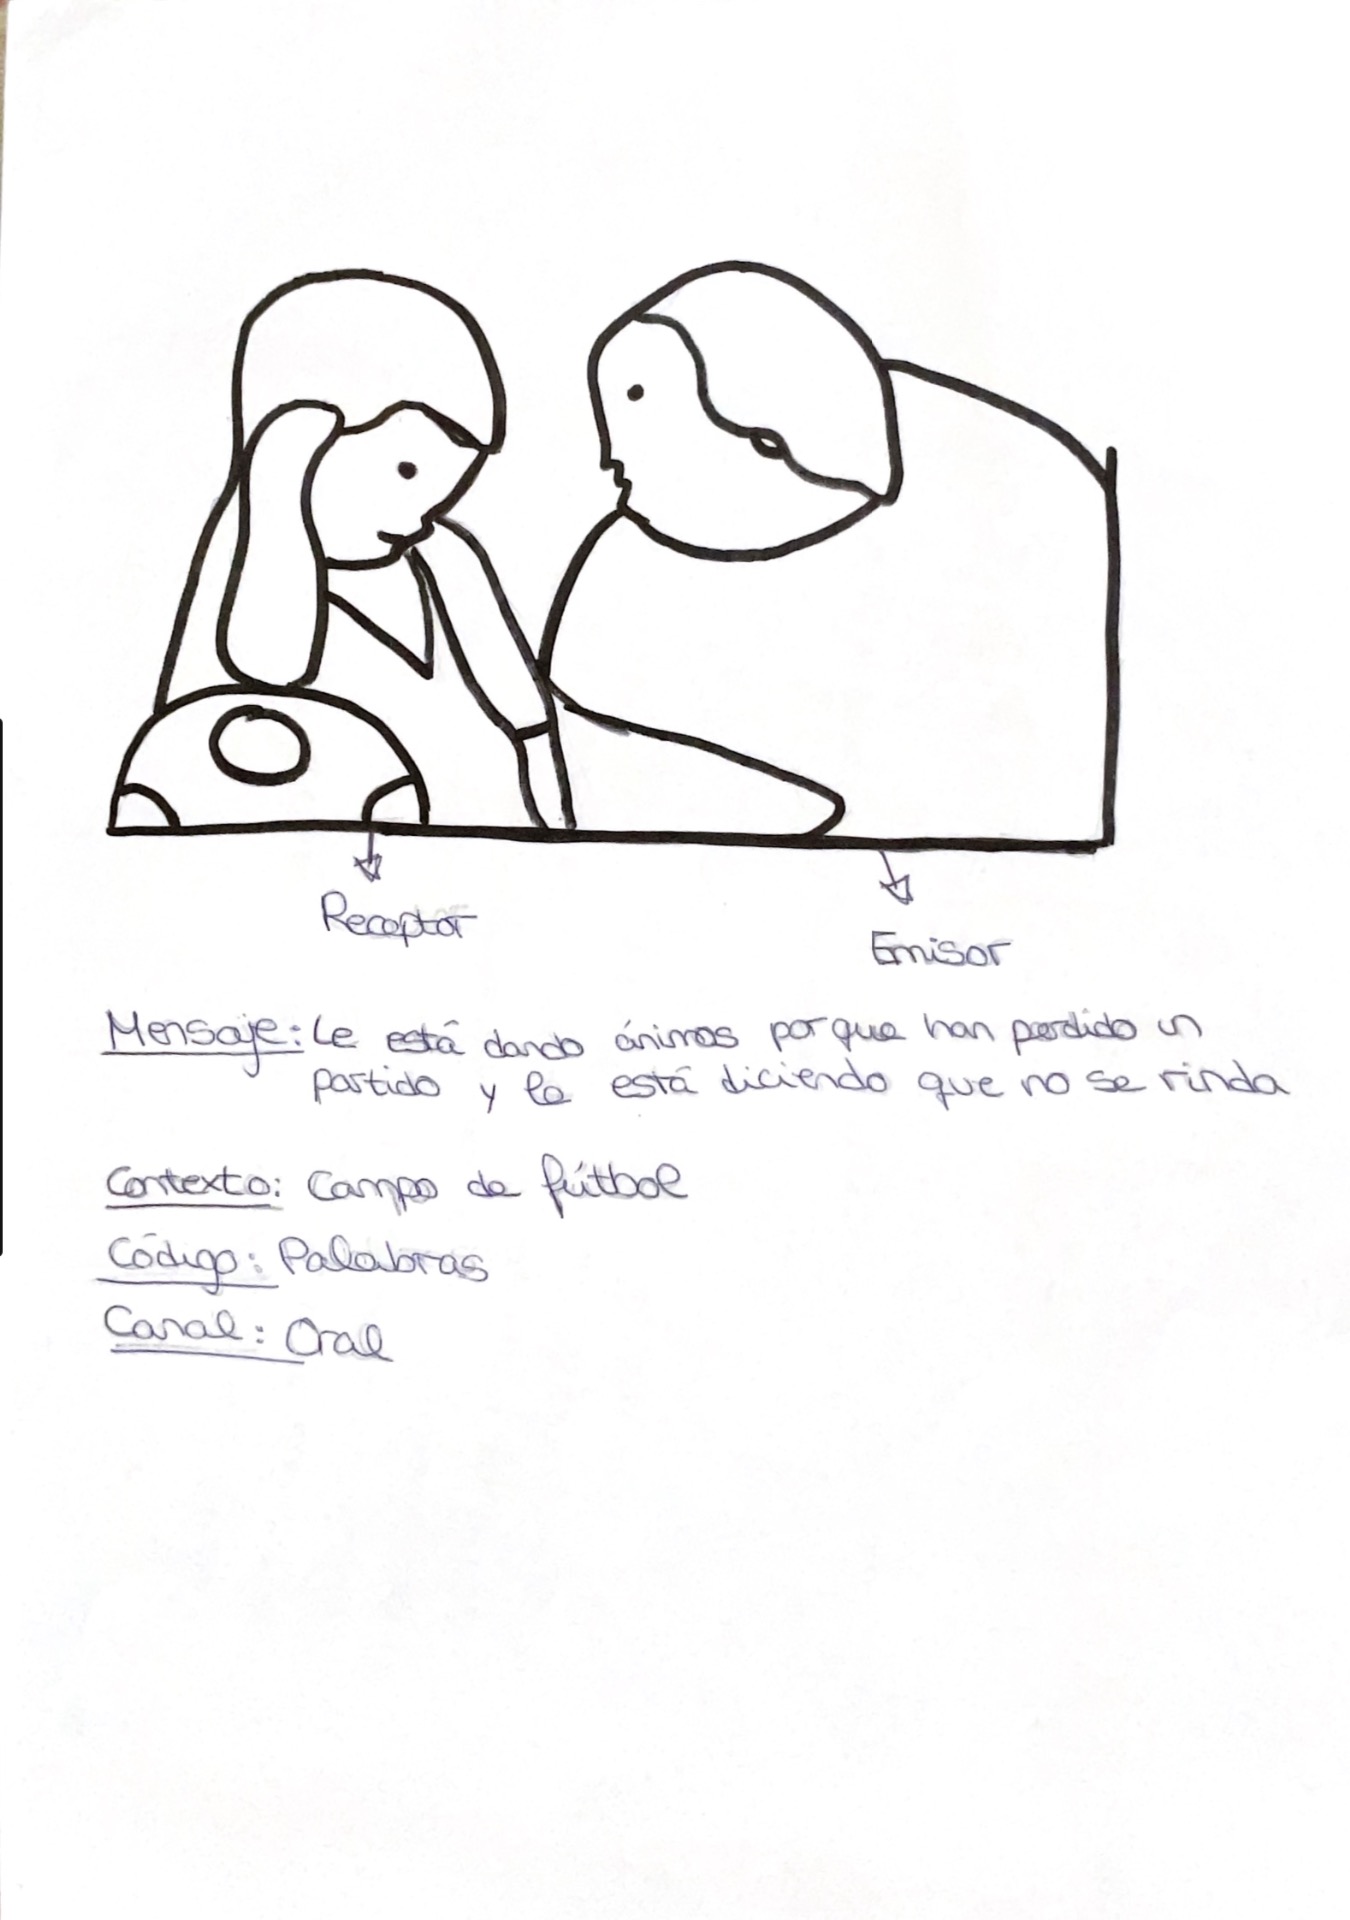 Receptor
Emisor
Mensaje: Le está dando ánimos porque han perdido un
partido y le está diciendo que no se rinda
Contexto: Campo de fútbol
Código: Palabras
Canal: Oral